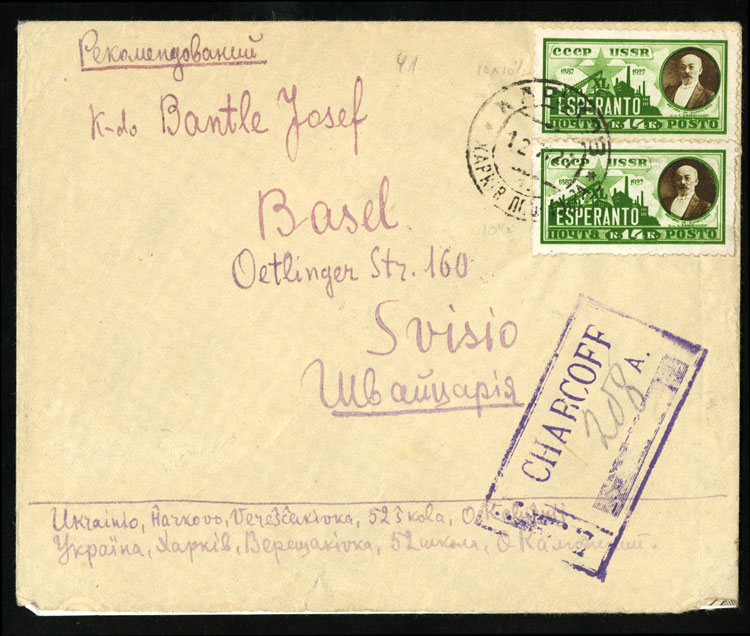 Рекомендований
41
СССР USSR
1887 1927
ESPERANTO
ПОЧТА 14 POSTO
K-do Bantle Josef
СССР USSR
1927
ESPERANTO
ПОЧТА 14 POSTO
Basel
Oetlinger Str. 160
Svisio
Швайцарія
CHARCOFF
258 A.
Ukrainio, Ĥarkovo, Vereŝĉakivka, 52 ŝkola, O.
Україна, Харків, Верещаківка, 52 школа, О.